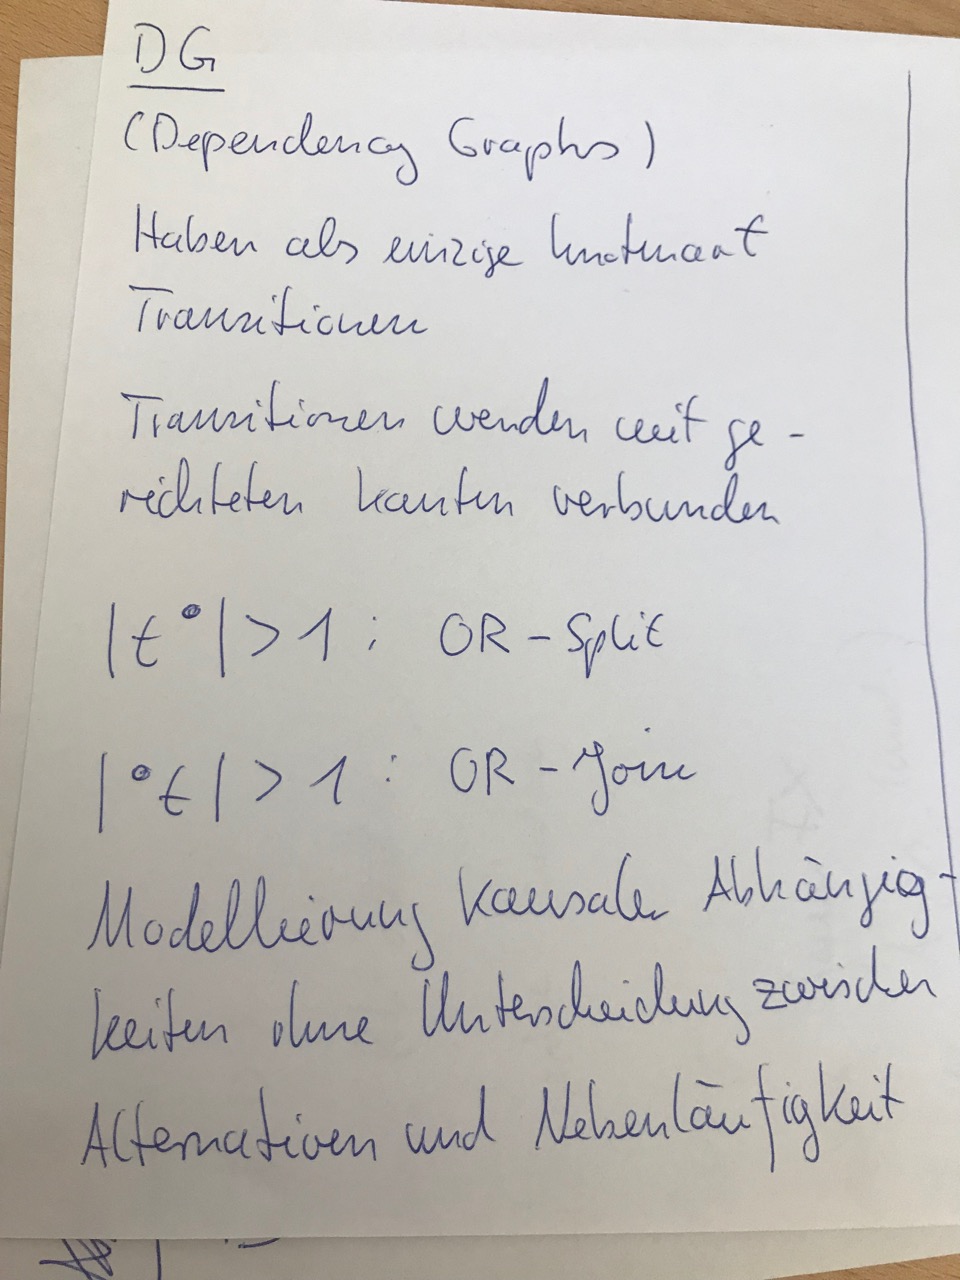 DG
(Dependency Graphs)
Haben als einzige Knotenart
Transitionen
Transitionen werden mit ge-
richteten Kanten verbunden
|t°|>1: OR-Split
|°t|>1: OR-Join
Modellierung kausaler Abhängig-
keiten ohne Unterscheidung zwischen
Alternativen und Nebenläufigkeit